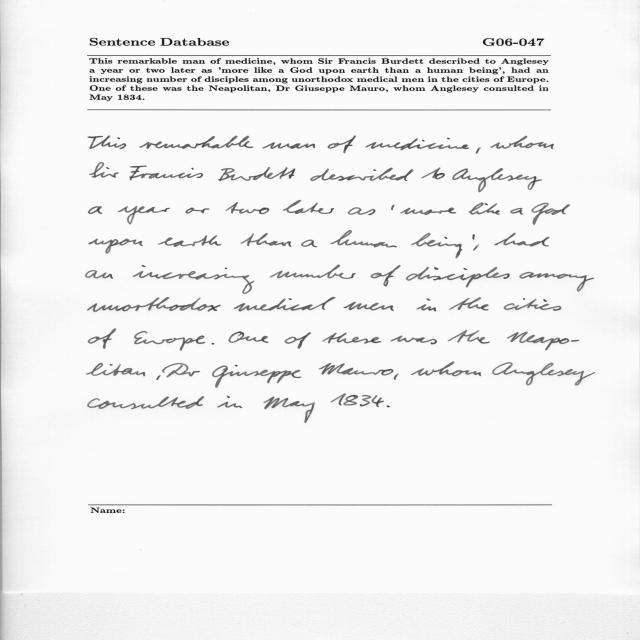 Sentence Database G06-047
This remarkable man of medicine, whom Sir Francis Burdett described to Anglesey
a year or two later as 'more like a God upon earth than a human being', had an
increasing number of disciples among unorthodox medical men in the cities of Europe.
One of these was the Neapolitan, Dr Giuseppe Mauro, whom Anglesey consulted in
May 1834.
This remarkable man of medicine, whom
Sir Francis Burdett described to Anglesey
a year or two later as 'more like a God
upon earth than a human being', had
an increasing number of disciples among
unorthodox medical men in the cities
of Europe. One of these was the Neapo-
litan, Dr Giuseppe Mauro, whom Anglesey
consulted in May 1834.
Name: